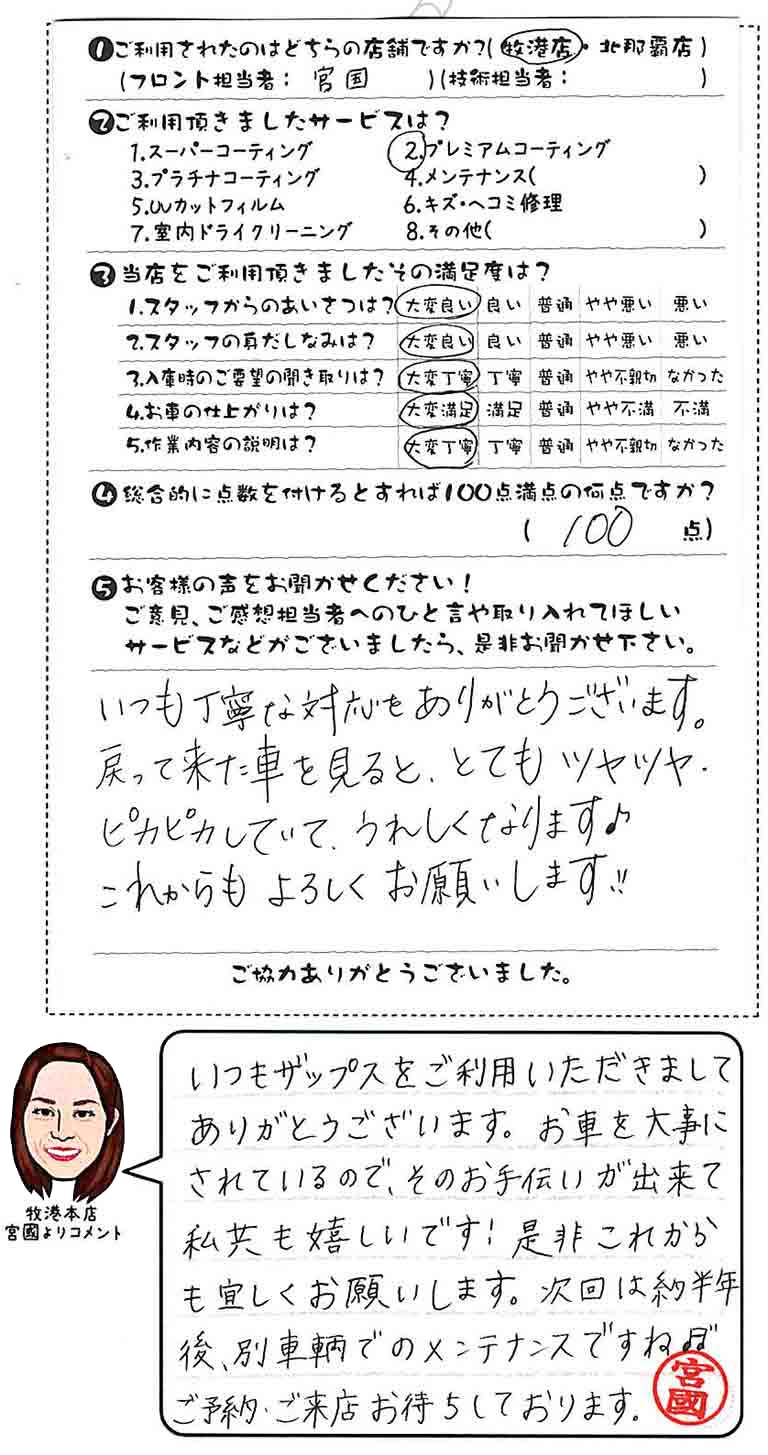 ❶ご利用されたのはどちらの店舗ですか?(牧港店・北那覇店)
(フロント担当者: 宮国 )(技術担当者: )
❷ご利用頂きましたサービスは?
1.スーパーコーティング 2.プレミアムコーティング
3.プラチナコーティング 4.メンテナンス( )
5.UVカットフィルム 6.キズ・ヘコミ修理
7.室内ドライクリーニング 8.その他( )
❸当店をご利用頂きましたその満足度は?
1.スタッフからのあいさつは? 大変良い 良い 普通 やや悪い 悪い
2.スタッフの身だしなみは? 大変良い 良い 普通 やや悪い 悪い
3.入庫時のご要望の聞き取りは? 大変丁寧 丁寧 普通 やや不親切 なかった
4.お車の仕上がりは? 大変満足 満足 普通 やや不満 不満
5.作業内容の説明は? 大変丁寧 丁寧 普通 やや不親切 なかった
❹総合的に点数を付けるとすれば100点満点の何点ですか?
( 100 点)
❺お客様の声をお聞かせください!
ご意見、ご感想担当者へのひと言や取り入れてほしい
サービスなどがございましたら、是非お聞かせ下さい。
いつも丁寧な対応をありがとうございます。
戻って来た車を見ると、とてもツヤツヤ・
ピカピカしていて、うれしくなります♪
これからもよろしくお願いします!!
ご協力ありがとうございました。
いつもザップスをご利用いただきまして
ありがとうございます。お車を大事に
されているので、そのお手伝いが出来て
私共も嬉しいです!是非これから
も宜しくお願いします。次回は約半年
後、別車輌でのメンテナンスですね♬
ご予約・ご来店お待ちしております。
宮國
牧港本店
宮國よりコメント